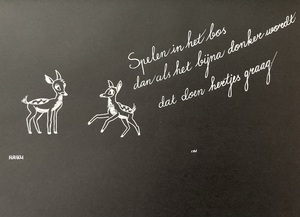 Spelen in het bos
dan als het bijna donker wordt
dat doen hertjes graag